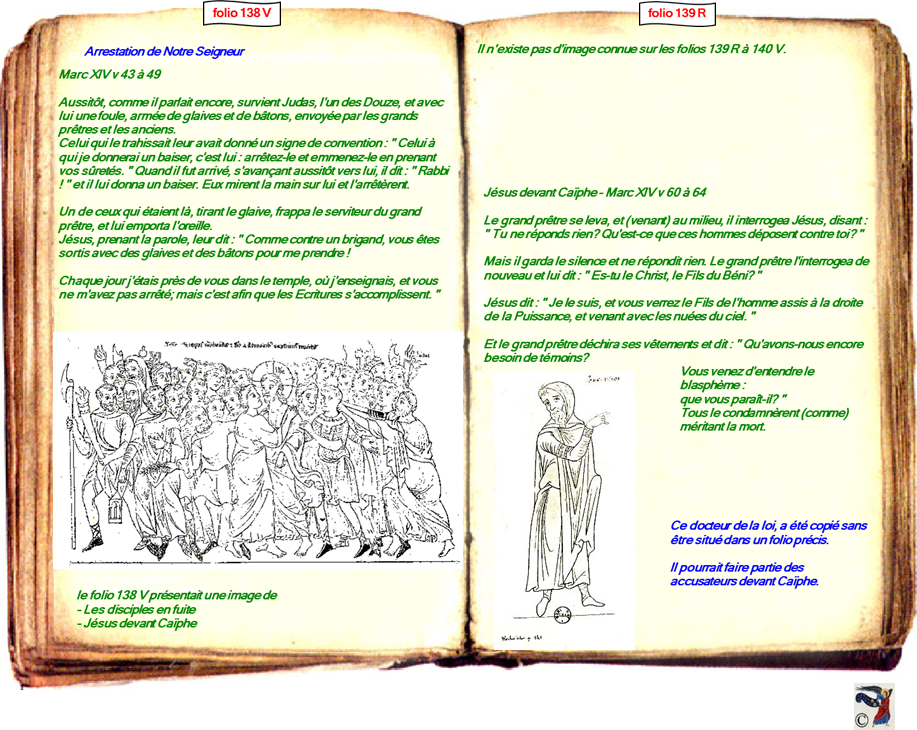 folio 138 V
Arrestation de Notre Seigneur
Marc XIV v 43 à 49
Aussitôt, comme il parlait encore, survient Judas, l'un des Douze, et avec
lui une foule, armée de glaives et de bâtons, envoyée par les grands
prêtres et les anciens.
Celui qui le trahissait leur avait donné un signe de convention : " Celui à
qui je donnerai un baiser, c'est lui : arrêtez-le et emmenez-le en prenant
vos sûretés. " Quand il fut arrivé, s'avançant aussitôt vers lui, il dit : " Rabbi
! " et il lui donna un baiser. Eux mirent la main sur lui et l'arrêtèrent.
Un de ceux qui étaient là, tirant le glaive, frappa le serviteur du grand
prêtre, et lui emporta l'oreille.
Jésus, prenant la parole, leur dit : " Comme contre un brigand, vous êtes
sortis avec des glaives et des bâtons pour me prendre !
Chaque jour j'étais près de vous dans le temple, où j'enseignais, et vous
ne m'avez pas arrêté; mais c'est afin que les Ecritures s'accomplissent. "
le folio 138 V présentait une image de
- Les disciples en fuite
- Jésus devant Caïphe
folio 139 R
Il n'existe pas d'image connue sur les folios 139 R à 140 V.
Jésus devant Caïphe - Marc XIV v 60 à 64
Le grand prêtre se leva, et (venant) au milieu, il interrogea Jésus, disant :
" Tu ne réponds rien? Qu'est-ce que ces hommes déposent contre toi? "
Mais il garda le silence et ne répondit rien. Le grand prêtre l'interrogea de
nouveau et lui dit : " Es-tu le Christ, le Fils du Béni? "
Jésus dit : " Je le suis, et vous verrez le Fils de l'homme assis à la droite
de la Puissance, et venant avec les nuées du ciel. "
Et le grand prêtre déchira ses vêtements et dit : " Qu'avons-nous encore
besoin de témoins?
Vous venez d'entendre le
blasphème :
que vous paraît-il? "
Tous le condamnèrent (comme)
méritant la mort.
Ce docteur de la loi, a été copié sans
être situé dans un folio précis.
Il pourrait faire partie des
accusateurs devant Caïphe.
©